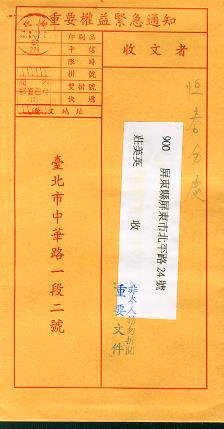 重要權益緊急通知
收文者
印刷品
平信
限時
掛號
雙掛號
快遞
發文地址
臺北市中華路一段二號
900 屏東縣屏東市北平路24號
莊美英 收
非本人請勿拆閱
重要文件